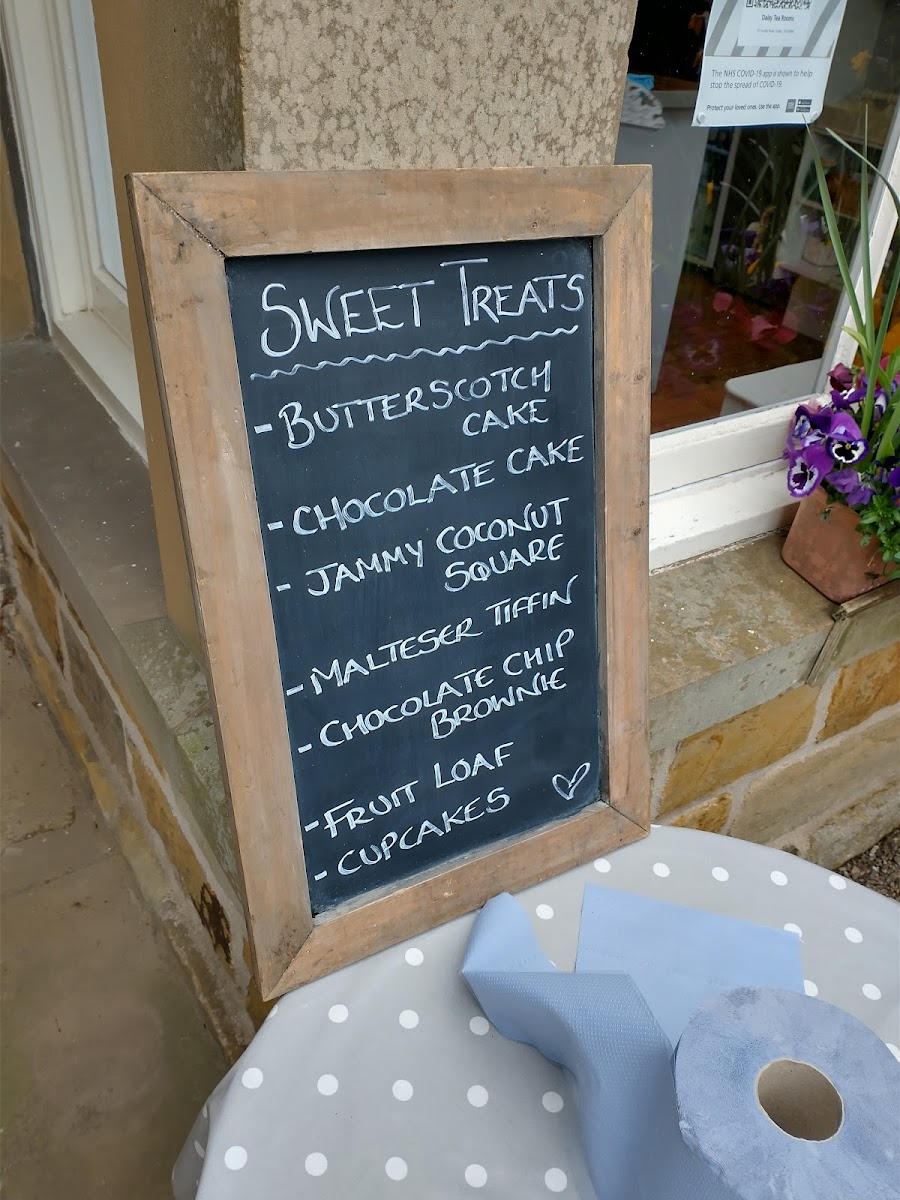 Daisy Tea Rooms
The NHS COVID-19 app is shown to help
stop the spread of COVID-19.
Protect your loved ones. Use the app.
SWEET TREATS
- BUTTERSCOTCH
CAKE
- CHOCOLATE CAKE
- JAMMY COCONUT
SQUARE
- MALTESER TIFFIN
- CHOCOLATE CHIP
BROWNIE
- FRUIT LOAF
- CUPCAKES